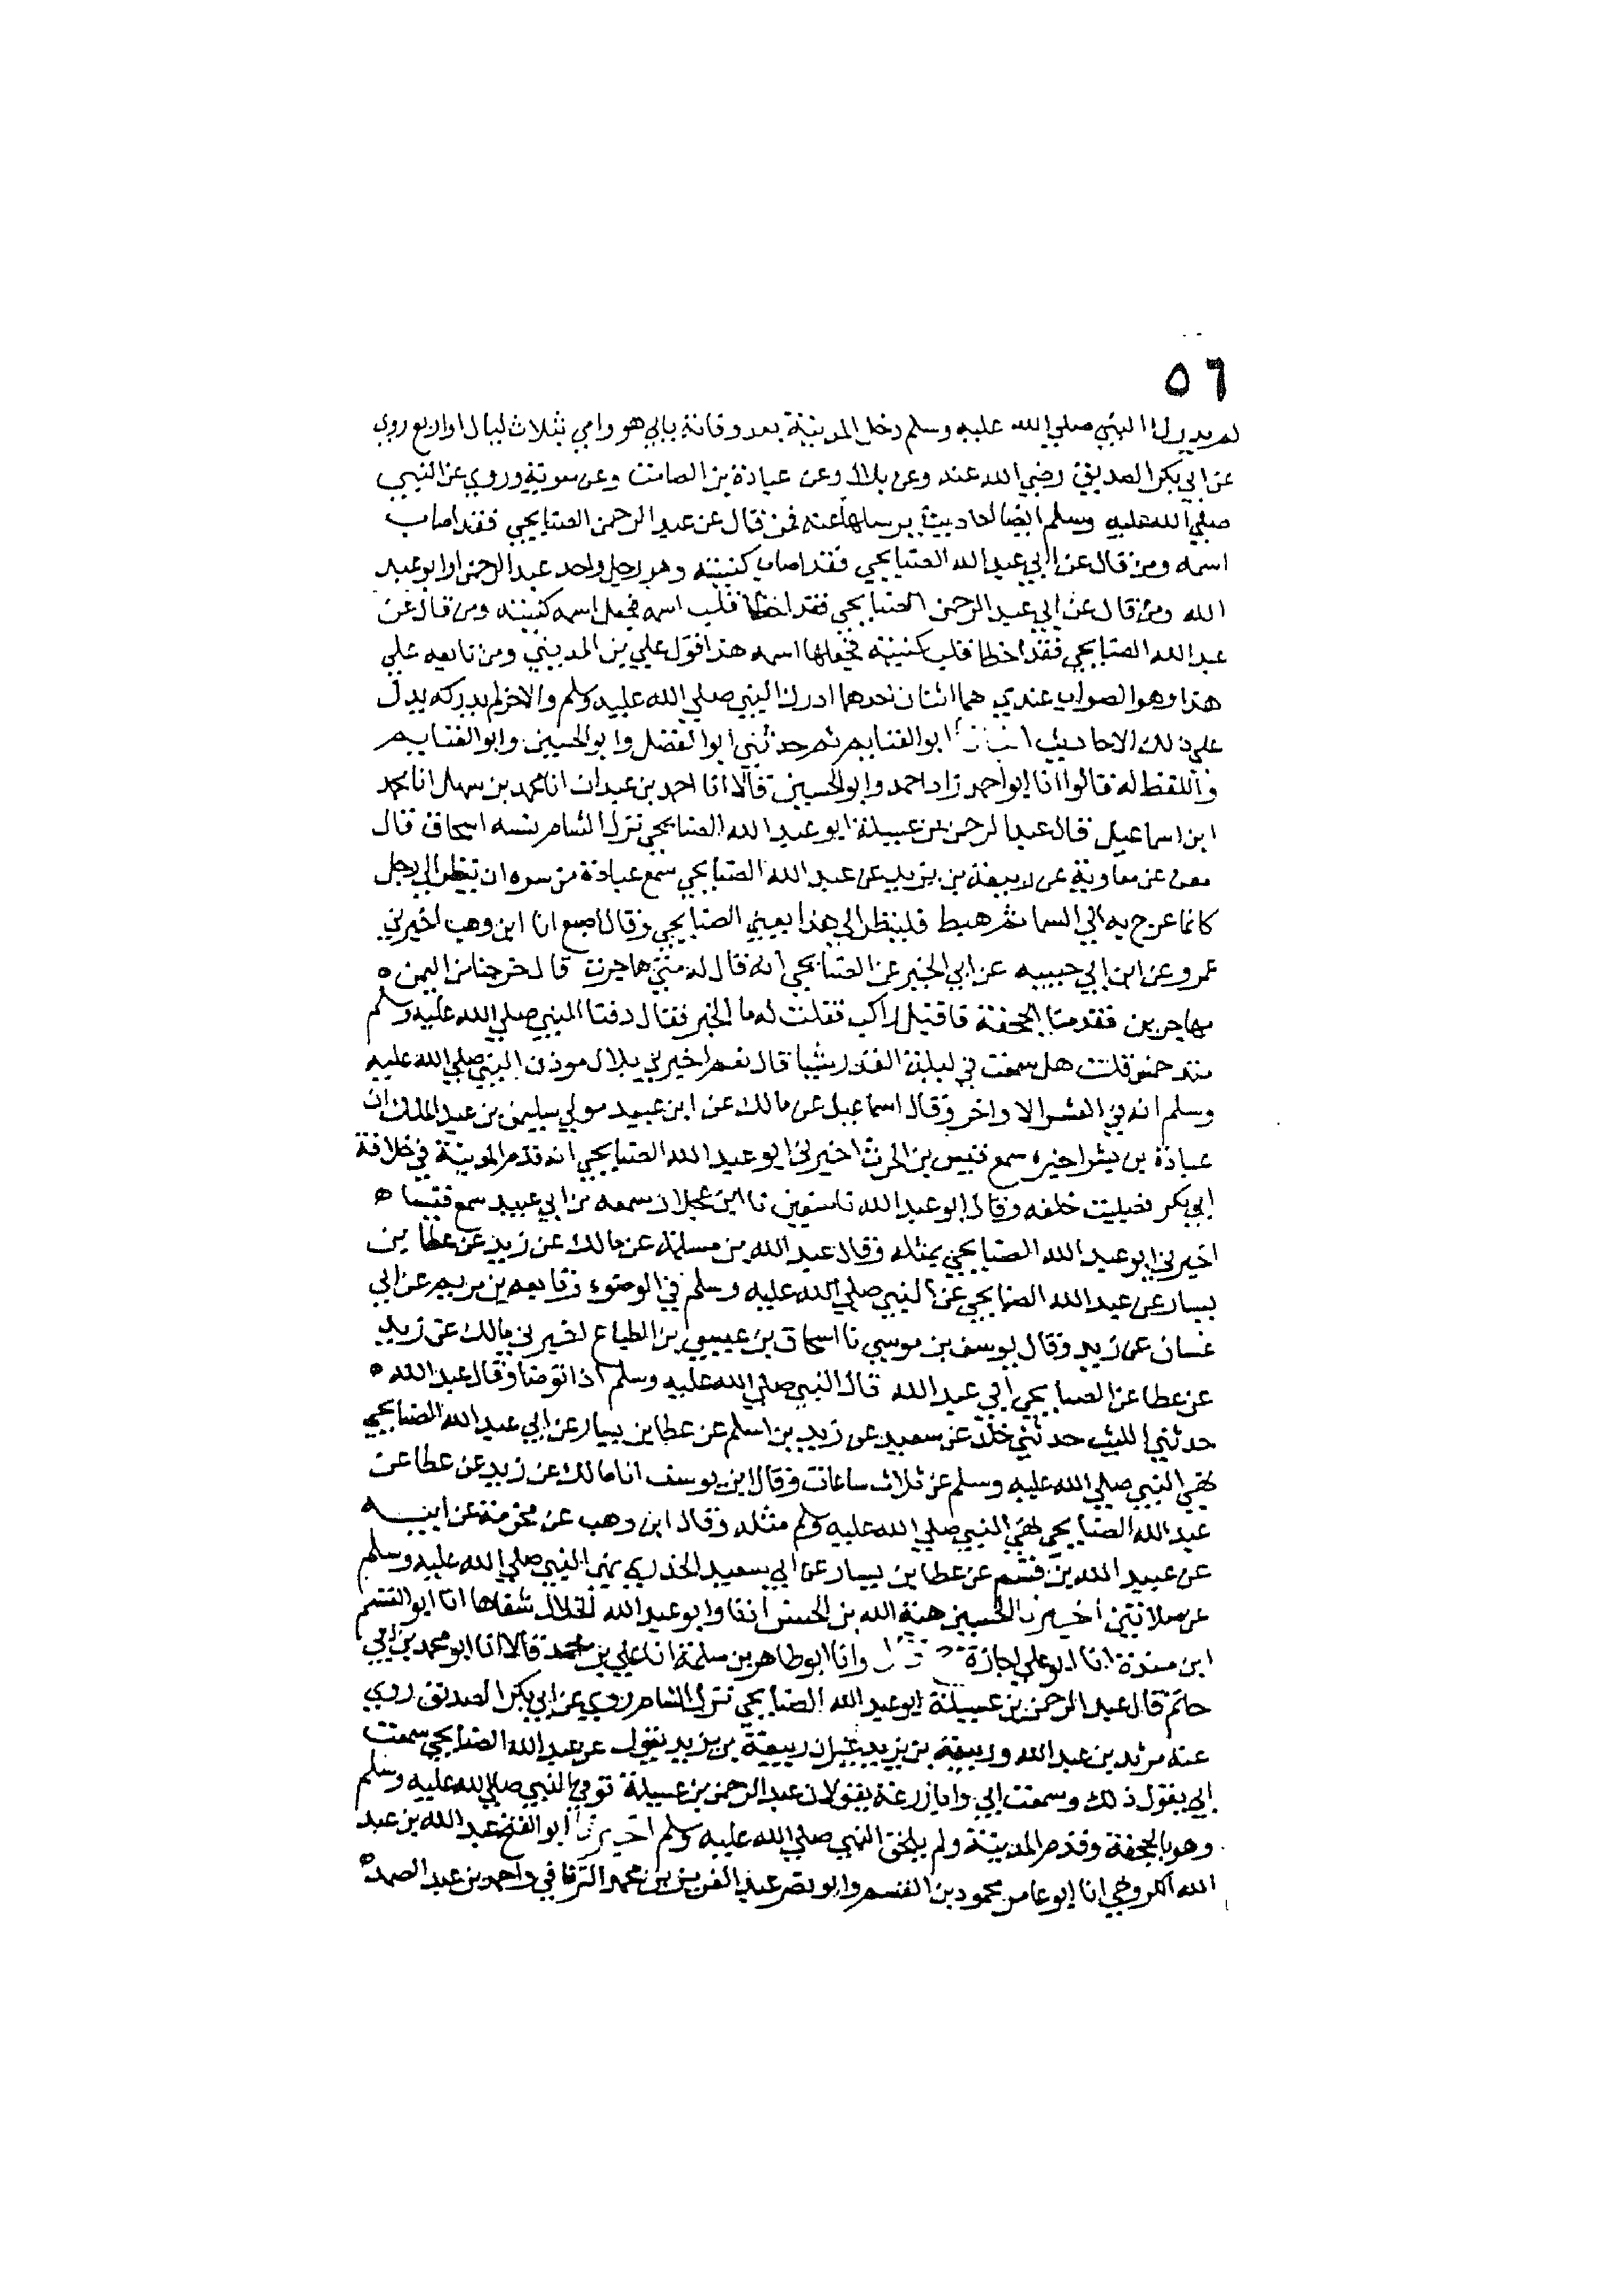 ٥٦
لم يدرك النبي صلي الله عليه وسلم دخل المدينة بعد وفاته بابي هو وامي بثلاث ليال او اربع روي
عن ابي بكر الصديق رضي الله عنه وعن بلال وعن عبادة بن الصامت وعن معوية وروي عن النبي
صلي الله عليه وسلم ايضا احاديث يرسلها عنه فمن قال عن عبد الرحمن الصنابحي فقد اصاب
اسمه ومن قال عن ابي عبد الله الصنابحي فقد اصاب كنيته وهو رجل واحد عبد الرحمن وابو عبد
الله ومن قال عن ابي عبد الرحمن الصنابحي فقد اخطا قلب اسمه فجعل اسمه كنيته ومن قال عن
عبد الله الصنابحي فقد اخطا قلب كنيته فجعلها اسمه هذا قول علي بن المديني ومن تابعه علي
هذا وهو الصواب عندي هما اثنان احدهما ادرك النبي صلي الله عليه وسلم والاخر لم يدركه يدل
علي ذلك الاحاديث انبانا ابو الغنايم ثم حدثني ابو الفضل وابو الحسين وابو الغنايم
واللفظ له قالوا انا ابو احمد زاد احمد وابو الحسين قالا انا احمد بن عبدان انا محمد بن سهل انا محمد
ابن اسماعيل قال عبد الرحمن بن عسيلة ابو عبد الله الصنابحي نزل الشام نسبه اسحاق قال
معن عن معاوية عن ربيعة بن يزيد عن عبد الله الصنابحي سمع عبادة من سره ان ينظر الي رجل
كانما عرج به الي السما ثم هبط فلينظر الي هذا يعني الصنابحي وقال اصبغ انا ابن وهب اخبرني
عمرو عن ابن ابي حبيبه عن ابي الخير عن الصنابحي انه قال له متي هاجرت قال خرجنا من اليمن ه
مهاجرين فقدمنا الجحفة فاقبل راكب فقلت له ما الخبر فقال دفنا النبي صلي الله عليه وسلم
منذ خمس قلت هل سمعت في ليلة القدر شيا قال نعم اخبرني بلال موذن النبي صلي الله عليه
وسلم انه في العشر الاواخر وقال اسماعيل عن مالك عن ابن عبيد مولي سليمن بن عبد الملك ان
عبادة بن بشر اخبره سمع قيس بن الحرث اخبرني ابو عبد الله الصنابحي انه قدم المدينة في خلافة
ابي بكر فصليت خلفه وقال ابو عبد الله نا سفين نا ابن عجلان سمعه من ابي عبيد سمع قيسا ه
اخبرني ابو عبد الله الصنابحي بمثله وقال عبد الله بن مسلمة عن مالك عن زيد عن عطا بن
يسار عن عبد الله الصنابحي عن النبي صلي الله عليه وسلم في الوضوء وتابعه بن مريم عن ابي
غسان عن زيد وقال يوسف بن موسي نا اسحاق بن عيسي بن الطباع اخبرني مالك عن زيد
عن عطا عن الصنابحي ابي عبد الله قال النبي صلي الله عليه وسلم اذا توضا وقال عبد الله ه
حدثني الليث حدثني خلد عن سعيد عن زيد بن اسلم عن عطا بن يسار عن ابي عبد الله الصنابحي
نهي النبي صلي الله عليه وسلم عن ثلاث ساعات وقال ابن يوسف انا مالك عن زيد عن عطا عن
عبد الله الصنابحي نهي النبي صلي الله عليه وسلم مثله وقال ابن وهب عن مخرمة عن ابيه
عن عبيد الله بن قسم عن عطا بن يسار عن ابي سعيد الخدري نهي النبي صلي الله عليه وسلم
عن صلاتين اخبرنا الحسين هبة الله بن الحسن انفا وابو عبد الله الخلال شفاها انا ابو القسم
ابن مندة انا ابو علي اجازة وانا ابو طاهر بن سلمة انا علي بن محمد قالا انا ابو محمد بن ابي
حاتم قال عبد الرحمن بن عسيلة ابو عبد الله الصنابحي نزل الشام روي عن ابي بكر الصديق روي
عنه مرثد بن عبد الله وربيعة بن يزيد غير ان ربيعة بن يزيد يقول عن عبد الله الصنابحي سمعت
ابي يقول ذلك وسمعت ابي وابا زرعة يقولان عبد الرحمن بن عسيلة توفي النبي صلي الله عليه وسلم
وهو بالجحفة وقدم المدينة ولم يلحق النبي صلي الله عليه وسلم اخبرنا ابو الفتح عبد الله بن عبد
الله الكروخي انا ابو عامر محمود بن القسم وابو نصر عبد العزيز بن محمد الترياقي واحمد بن عبد الصمد ه